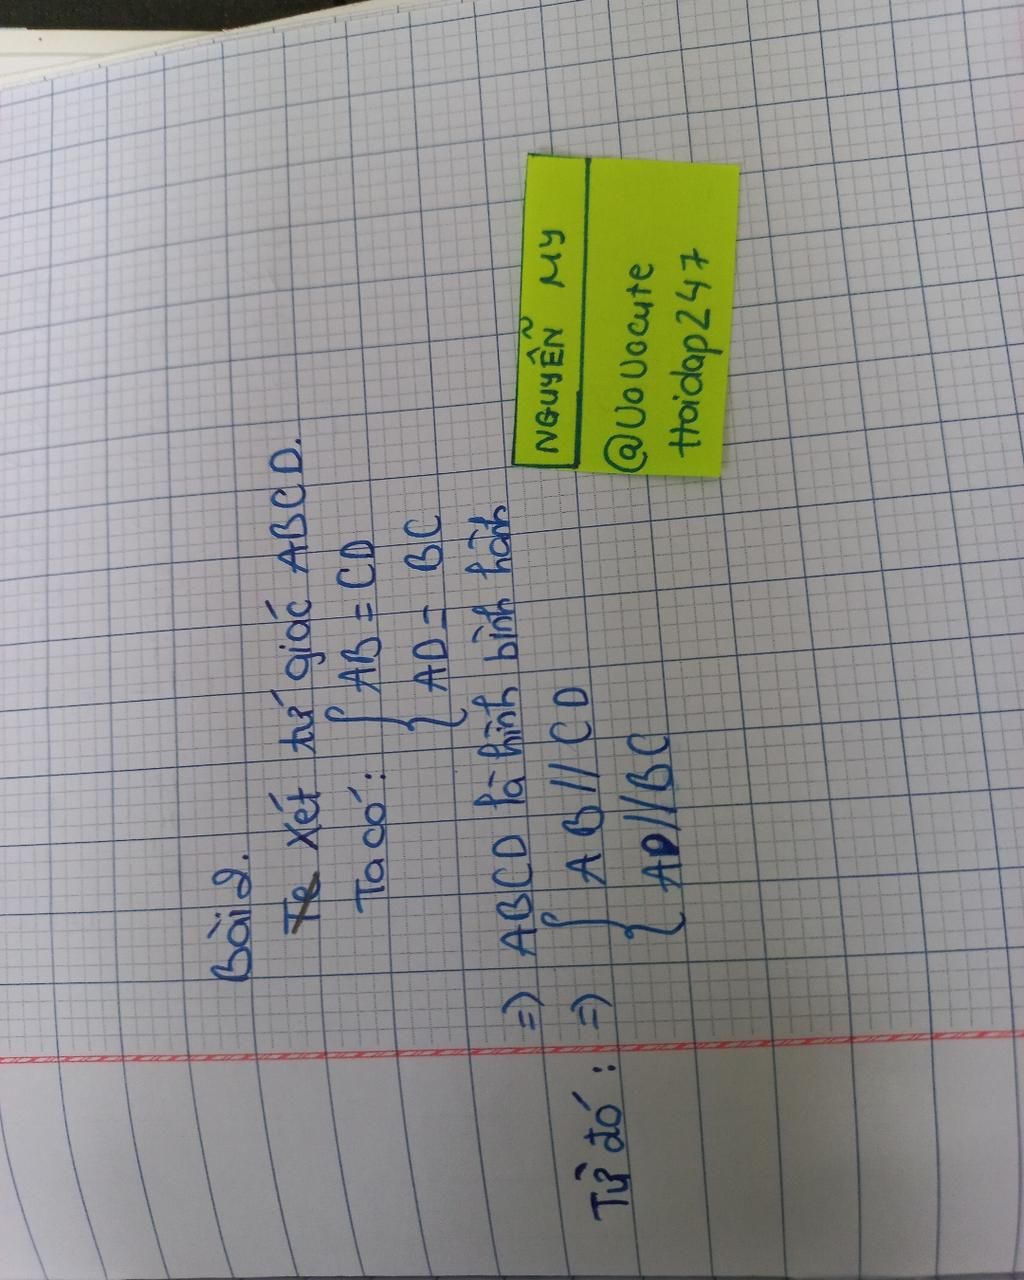 Bài 2.
Te Xét tứ giác ABCD.
Ta có: { AB = CD
AD = BC
=) ABCD là hình bình hành
Từ đó: =) { AB // CD
AD // BC
NGUYỄN MY
@UoUocute
Hoidap247